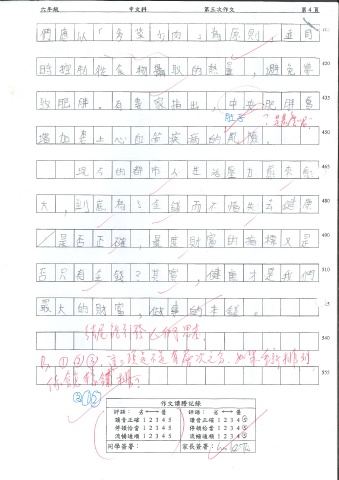 六年級 中文科 第三次作文 第4頁
們應以「多菜少肉」為原則，並同
420
時控制從食物攝取的熱量，避免導
435
致肥胖。有專家指出，中央肥胖會
450
增加患上心血管疾病的風險。
465
現今的都市人生活壓力愈來愈
480
大，到底為了金錢而不惜失去健康
495
是否正確，量度財富的指標又是
510
否只有金錢？其實，健康才是我們
525
最大的財富，做事的本錢。
540
結尾能引發人們思考。
555
作文讀謄記錄
評語： 劣⟷優 評語： 劣⟷優
讀音正確 1 2 3 4 5 讀音正確 1 2 3 4 5
停頓恰當 1 2 3 4 5 停頓恰當 1 2 3 4 5
流暢通順 1 2 3 4 5 流暢通順 1 2 3 4 5
同學簽署： 家長簽署：